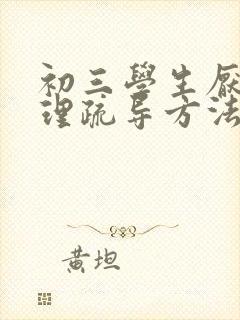 初三學生厭
理疏导方法
黄坦